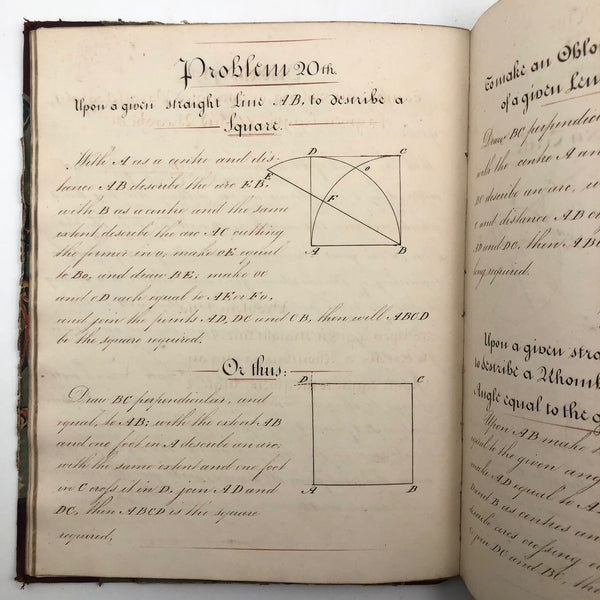 Problem 20th.
Upon a given straight Line AB, to describe a
Square.
With A as a centre and dis-
tance AB describe the arc EB,
with B as a centre and the same
extent describe the arc AC cutting
the former in o, make oE equal
to Bo, and draw BE, make oC
and oD each equal to AF or Fo,
and join the points AD, DC and CB, then will ABCD
be the square required.
D
C
E
o
F
A
B
Or thus:
Draw BC perpendicular, and
equal, to AB; with the extent AB
and one foot in A describe an arc;
with the same extent and one foot
in C cross it in D, join AD and
DC, then ABCD is the square
required,
D
C
A
B
To make an Oblon
of a given Len
Draw BC perpendic
with the centre A an
BC describe an arc, w
C and distance AB c
AD and DC, then AB
long required.
Upon a given stra
to describe a Rhomb
Angle equal to the a
Upon AB make t
equal to the given ang
make AD equal to A
D and B as centres an
scribe arcs crossing
join DC and BC, th